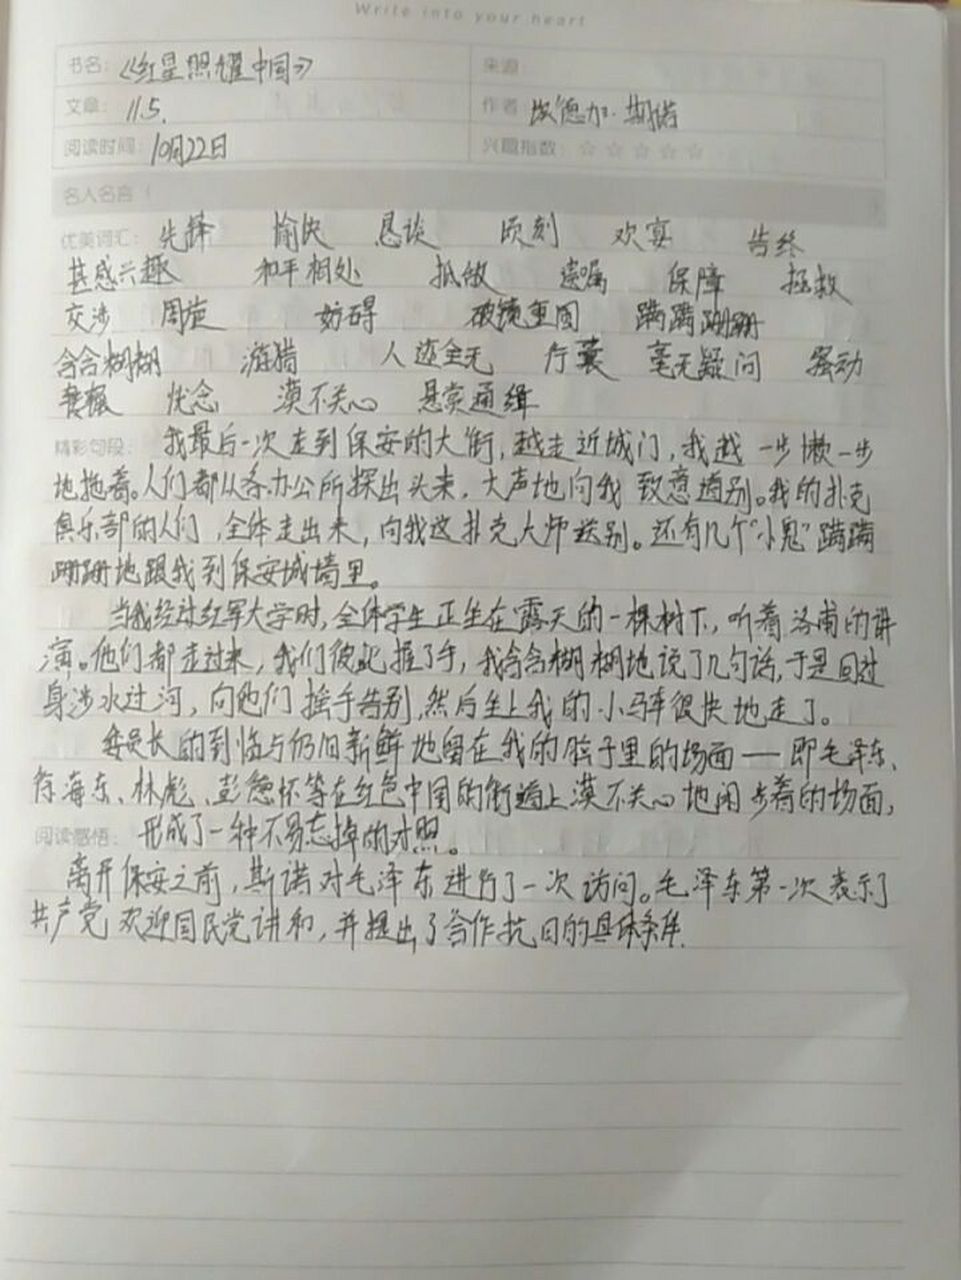 Write into your heart
书名：《红星照耀中国》 来源：
文章：11.5. 作者：埃德加·斯诺
阅读时间：10月22日 兴趣指数：☆☆☆☆☆
名人名言
优美词汇：先锋 愉快 恳谈 顷刻 欢宴 告终
甚感兴趣 和平相处 抵敌 遗嘱 保障 拯救
交涉 周旋 妨碍 破镜重圆 蹒蹒跚跚
含含糊糊 游猎 人迹全无 行囊 毫无疑问 骚动
丧榇 忧念 漠不关心 悬索通缉
精彩句段：我最后一次走到保安的大街，越走近城门，我越一步懒一步
地拖着。人们都从各办公所探出头来，大声地向我致意道别。我的扑克
俱乐部的人们，全体走出来，向我这扑克大师送别。还有几个“小鬼”蹒蹒
跚跚地跟我到保安城墙里。
当我经过红军大学时，全体学生正坐在露天的一棵树下，听着洛甫的讲
演。他们都走过来，我们彼此握了手，我含含糊糊地说了几句话，于是回过
身涉水过河，向他们摇手告别，然后坐上我的小马车很快地走了。
委员长的到临与仍旧新鲜地留在我的脑子里的场面——即毛泽东、
徐海东、林彪、彭德怀等在红色中国的街道上漠不关心地闲步着的场面，
阅读感悟：形成了一种不易忘掉的对照。
离开保安之前，斯诺对毛泽东进行了一次访问。毛泽东第一次表示了
共产党欢迎国民党讲和，并提出了合作抗日的具体条件.